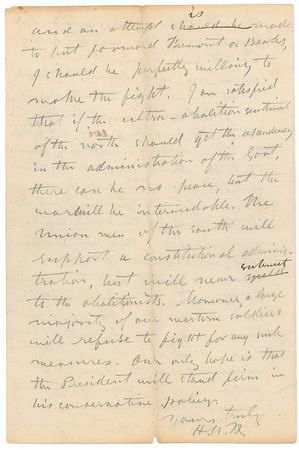 is
and an attempt should be made
to put forward Fremont or Banks,
I should be perfectly willing to
make the fight. I am satisfied
that if the ultra-abolition sentiment
of the north should get the ascendency
in the administration of the Govt,
there can be no peace, but the
war will be interminable. The
Union men of the south will
support a constitutional adminis-
tration, but will never yield submit
to the abolitionists. Moreover, a large
majority of our western soldiers
will refuse to fight for any such
measures. Our only hope is that
the President will stand firm in
his conservative policy.
Yours truly
H.W.